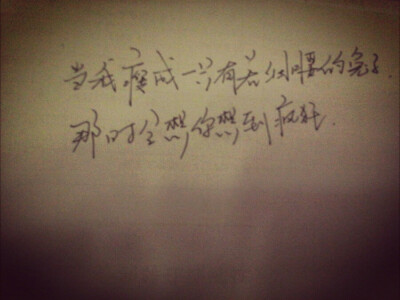 当我瘦成一只有着细腰的兔子.
那时会想你想到疯狂.